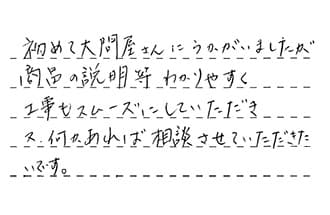 初めて大問屋さんにうかがいましたが
商品の説明等わかりやすく
工事もスムーズにしていただき
又、何かあれば相談させていただきた
いです。